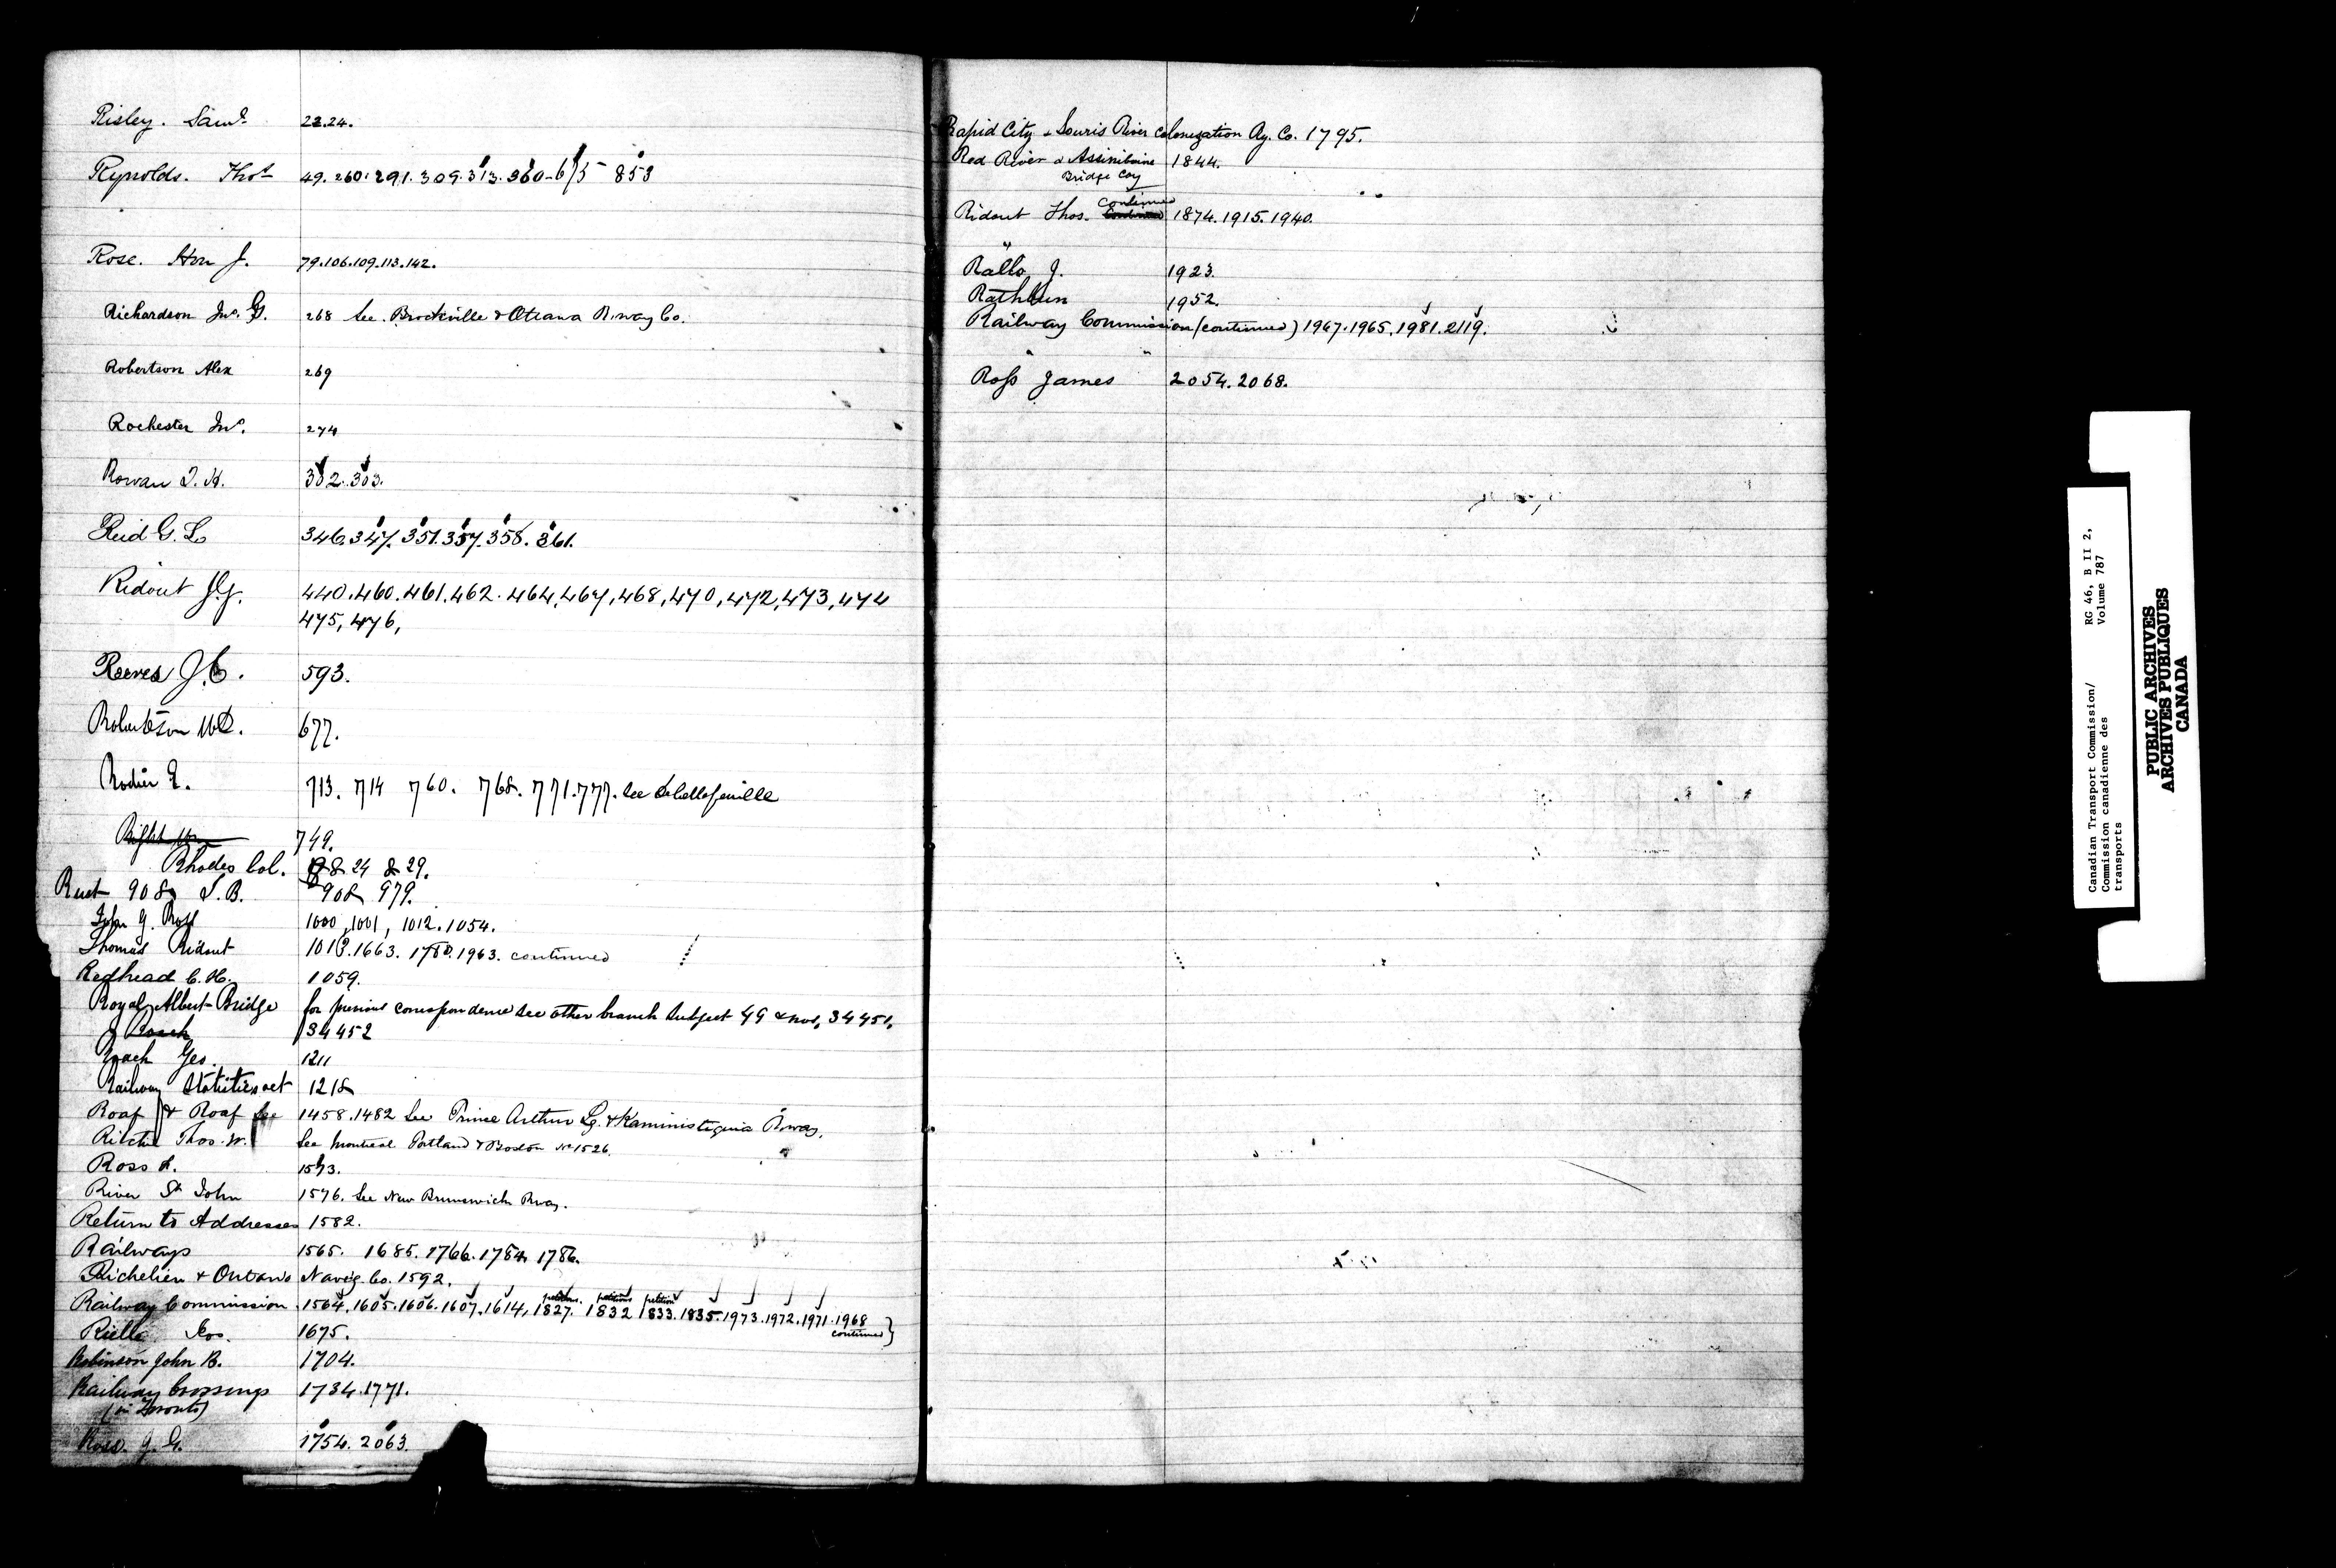 Risley. Saml. 22.24.
Reynolds. Thos 49. 260. 291. 309. 313. 360. 675 853
Rose. Hon J. 79.106.109.113.142.
Richardson Jno. G. 268 See. Brockville & Ottawa R. way Co.
Robertson Alex 269
Rochester Jno. 274
Rowan J. H. 302. 303.
Reid G. L. 346. 347. 351. 357. 358. 361.
Ridout J.G. 440. 460. 461. 462. 464, 467, 468, 470, 472, 473, 474
475, 476,
Reeves J.C. 593.
Robertson 677.
Rodier E. 713. 714 760. 768. 771. 777. See
Right 749.
Rhodes Col. 824 829.
Rust 908 S.B. 908 979.
John G. Ross 1000, 1001, 1012. 1054.
Thomas Ridout 1013. 1663. 1780. 1963. continued
Redhead C. H. 1059.
Royal Albert Bridge for previous correspondence see other branch Subject 49 & nos, 34451,
J Roach 34452
Roach Geo. 1211
Railway Statistics act 1218
Roaf & Roaf See 1458. 1482 See Prince Arthur Lg. & Kaministiquia R.way.
Ritchie Thos. W. See Montreal Portland & Boston No 1526.
Ross A. 1573.
River St John 1576. See New Brunswick Rway.
Return to Addresses 1582.
Railways 1565. 1685. 1766. 1784. 1786.
Richelieu & Ontario Navig. Co. 1592.
petitions. petitions petition
Railway Commission. 1564. 1605. 1606. 1607. 1614, 1827. 1832 1833. 1835. 1973. 1972. 1971. 1968
continued }
Riello 1675.
Robinson John B. 1704.
Railway Crossings 1734. 1771.
(in Toronto)
Ross. J. G. 1754. 2063.
Rapid City & Souris River Colonization Ry. Co. 1795.
Red River & Assiniboine 1844.
Bridge Coy
continued
Ridout Thos. 1874. 1915. 1940.
Rallo J. 1923.
Rathbun 1952.
Railway Commission (continued) 1967. 1965. 1981. 2119.
Ross James 2054. 2068.
Canadian Transport Commission/ RG 46, B II 2,
Commission canadienne des Volume 787
transports
PUBLIC ARCHIVES
ARCHIVES PUBLIQUES
CANADA